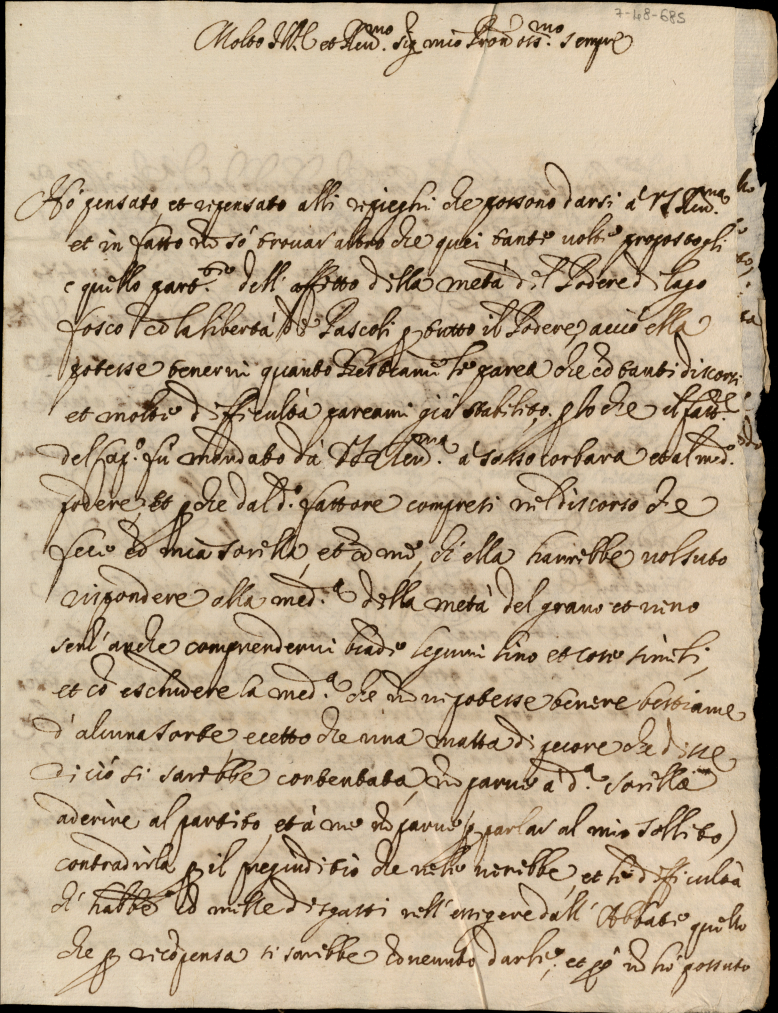 7-48-685
Molto Ill.e et Rev.mo Sig.r mio Pron oss.mo sempre
Hò pensato, et ripensato alli ripieghi che possono darsi à VS Rev.ma
et in fatto nõ sò trovar altro che quei tante volte propostogli
e quello part.re dell' affitto della metà del Podere di lago
fosco cõ la libertà de Pascoli p tutto il Podere, acciò ella
potesse tenervi quanto bestiame le parea che cõ tanti discorsi
et molte difficultà pareami già stabilito. p lo che il fatt.re
del fù mandato dà VS Rev.ma à sotto corbara et al med.o
podere, et p che dal d.o fattore compresi nel discorso che
fece cõ mia sorella, et cõ me, ch' ella havrebbe volsuto
rispondere alla med.a della metà del grano et vino
senz' anche comprendervi biade legumi lino et cose simili,
et cõ escludere la med.a che nõ vi potesse tenere bestiame
d' alcuna sorte ecetto che una matta di pecore che disse
di ciò si sarebbe contentata, nõ parve à d.a sorella
aderire al partito, et à me nõ parve (p parlar al mio sollito)
contradirla p il pregiuditio che nelle verebbe, et le difficultà
ch' habbe cõ mille disgusti nell' essigere dall' Abbate quello
che p ricõpensa si sarebbe convenuto darle, et p.ò nõ hò possuto